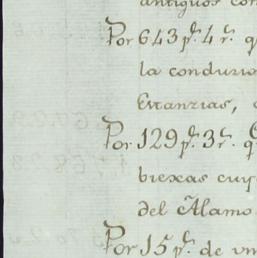 antiguos con
Por 643 p.s 4 r.s q
la conducio
Estanzias,
Por 129 p.s 3 r.s q
biexas cuy
del Alamo
Por 15 p.s de un